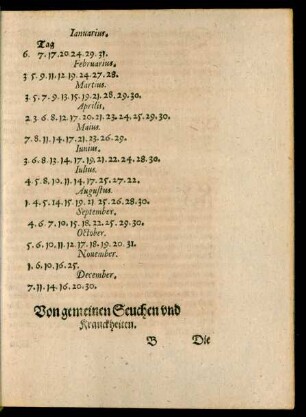 Ianuarius.
Tag
6. 7.17.20.24.29.31.
Februarius.
3.5.9.11.12.19.24.27.28.
Martius.
3.5.7.9.13.15.19.21.28.29.30.
Aprilis.
2.3.6.8.12.17.20.21.23.24.25.29.30.
Maius.
7.8.11.14.17.21.23.26.29.
Iunius.
3.6.8.13.14.17.19.21.22.24.28.30.
Iulius.
4.5.8.10.11.14.17.25.27.22.
Augustus.
1.4.5.14.15.19.21.25.26.28.30.
September.
4.6.7.10.15.18.22.25.29.30.
October.
5.6.10.11.12.17.18.19.20.31.
Nouember.
1.6.10.16.25.
December.
7.11.14.16.20.30.
Von gemeinen Seuchen vnd
Kranckheiten.
B Die